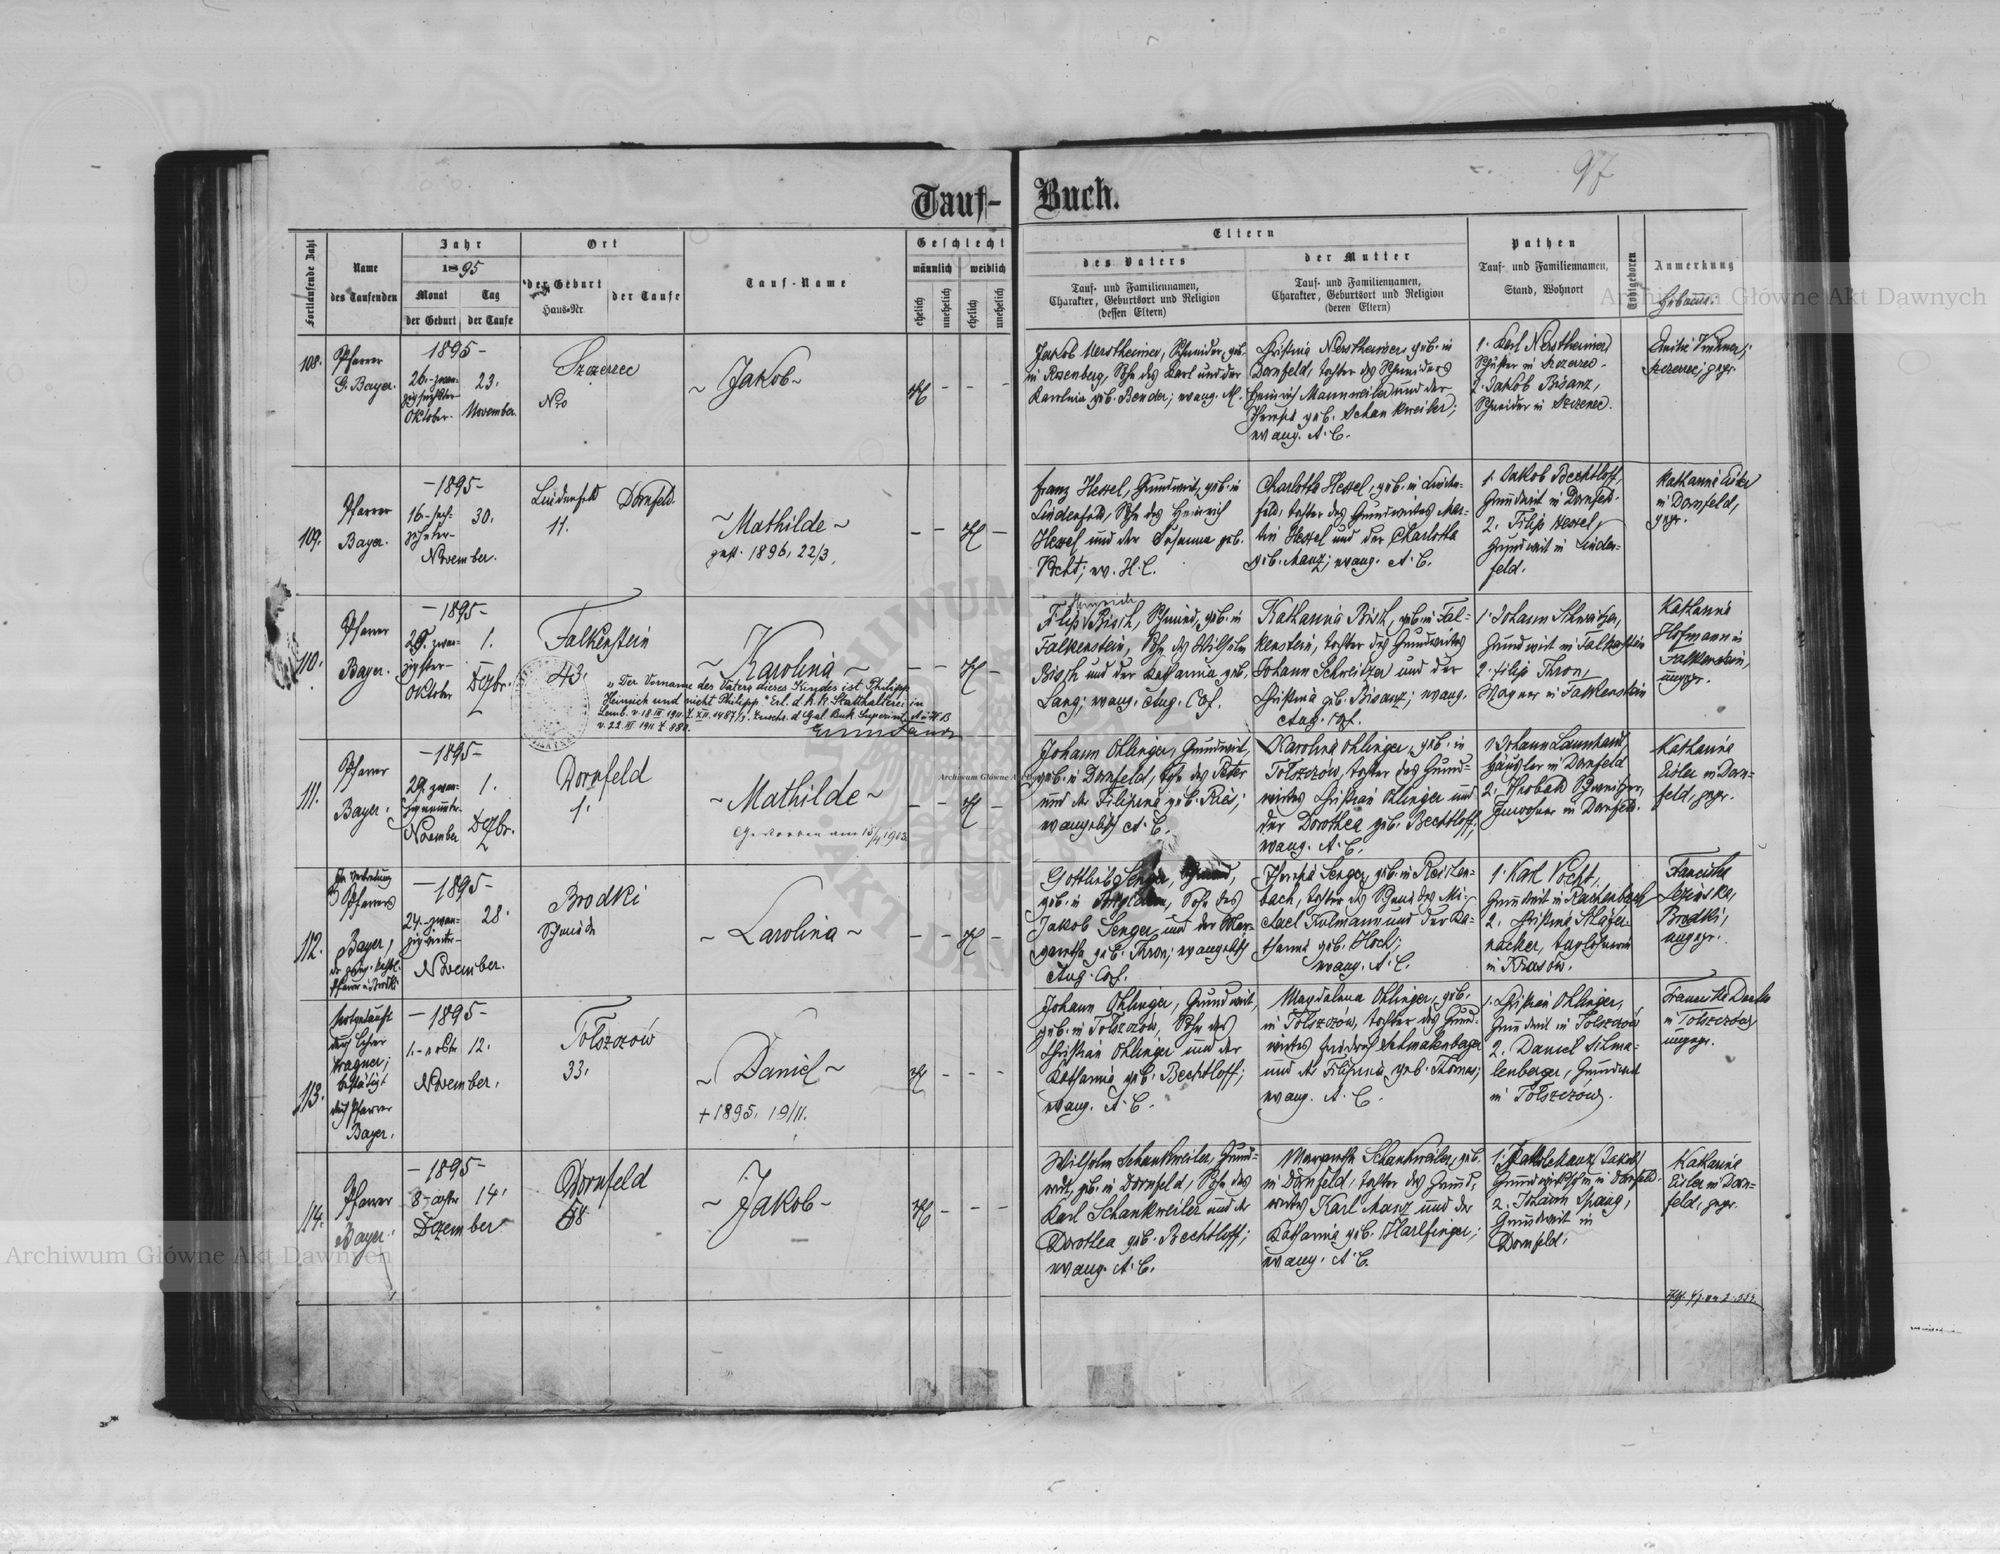 97
Tauf- Buch.
Fortlaufende Zahl
Name
des Taufenden
Jahr
1895
Monat
der Geburt
Tag
der Taufe
Ort
der Geburt
Haus-Nr.
der Taufe
Tauf-Name
Geschlecht
männlich
weiblich
ehelich
unehelich
ehelich
unehelich
Eltern
des Vaters
Tauf- und Familiennamen,
Charakter, Geburtsort und Religion
(dessen Eltern)
der Mutter
Tauf- und Familiennamen,
Charakter, Geburtsort und Religion
(deren Eltern)
Pathen
Tauf- und Familiennamen,
Stand, Wohnort
Todtgeboren
Anmerkung
Hebamme.
108.
Pfarrer
G. Bayer.
- 1895 -
26.- zwan-
zigsechster
Oktober.
23.
November.
Szczerzec
Nro
~ Jakob ~
Jakob Nerstheimer, Schneider, geb.
in Rosenberg, Sohn des Karl und der
Karolina geb. Bender; evang. A.
Christina Nerstheimer geb. in
Dornfeld, Tochter des Schneiders
Heinrich Mannweiler und der
Theresia geb. Schankweiler;
evang. A. C.
1. Karl Nerstheimer,
Schuster in Szczerzec.
2. Jakob Bisanz,
Schneider in Szczerzec.
Szczerzec; gepr.
109.
Pfarrer
Bayer.
- 1895 -
16.- sech-
zehnter -
November.
30.
Lindenfeld
11.
Dornfeld.
~ Mathilde ~
gest. 1896. 22/3.
Franz Hessel, Grundwirt, geb. in
Lindenfeld, Sohn des Heinrich
Hessel und der Susanna geb.
Vocht; ev. H. C.
Charlotta Hessel, geb. in Linden-
feld, Tochter des Grundwirtes Mar-
tin Hessel und der Charlotta
geb. Manz; evang. A. C.
1. Jakob Bechtloff,
Grundwirt in Dornfeld.
2. Filip Hessel,
Grundwirt in Linden-
feld.
Katharina Eisler
in Dornfeld,
gepr.
110.
Pfarrer
Bayer.
- 1895 -
Oktober
1.
Dezbr.
Falkenstein
43.
~ Karolina ~
"Der Vorname des Vaters dieses Kindes ist Philipp
Heinrich und nicht Philipp." Erl. d. k. k. Statthalterei in
Lemb. v. 18. III. 1911 Z. XII. 1487/1. Zuschr. d. Gal. Buk. Superint. A. u. H. B.
v. 22. III. 1911 Z. 988.
Heinrich
Filip Bisch, Schmied, geb. in
Falkenstein, Sohn des Wilhelm
Bisch und der Katharina geb.
Lang; evang. Aug. Conf.
Katharina Bisch, geb. in Fal-
kenstein, Tochter des Grundwirtes
Johann Schweitzer und der
Christina geb. Bisanz; evang.
Aug. Conf.
1. Johann Schweitzer,
Grundwirt in Falkenstein
2. Filip Thron,
Wagner in Falkenstein
Katharina
Hofmann in
Falkenstein,
ungepr.
111.
Pfarrer
Bayer.
- 1895 -
29. zwan-
zigneunter
November
1.
Dezbr.
Dornfeld
1.
~ Mathilde ~
Gestorben am 15/4 1903
Johann Ohlinger, Grundwirt,
geb. in Dornfeld, Sohn des Peter
und der Filipina geb. Ries;
evangelisch A. C.
Karolina Ohlinger, geb. in
Tolszczów, Tochter des Grund-
wirtes Christian Ohlinger und
der Dorothea geb. Bechtloff;
evang. A. C.
1. Johann Launhardt,
Häusler in Dornfeld
2. Theobald Schweitzer,
Inwohner in Dornfeld.
Katharina
Eisler in Dorn-
feld, gepr.
112.
In Vertretung
des Pfarrers
Bayer,
- 1895 -
24.- zwan-
zigvierter -
November.
28.
Brodki
Schmiede
~ Karolina ~
Gottlieb Senger, Schmied,
geb. in Sohn des
Jakob Senger und der Mar-
garetha geb. Thron; evangelisch
Aug. Conf.
Theresia Senger, geb. in Reichen-
bach, Tochter des Schmiedes Mi-
chael Kolmann und der Ka-
tharina geb. Hoch;
evang. A. C.
1. Karl Vocht,
Grundwirt in Reichenbach
2. Christina
Taglöhnerin
in Krasów.
Franciska
Brodki,
ungepr.
113.
Notgetauft
durch Lehrer
Wagner;
bestätigt
durch Pfarrer
Bayer.
- 1895 -
1.- erster
12.
November.
Tolszczów
33.
~ Daniel ~
+ 1895. 19/11.
Johann Ohlinger, Grundwirt,
geb. in Tolszczów, Sohn des
Christian Ohlinger und der
Katharina geb. Bechtloff;
evang. A. C.
Magdalena Ohlinger, geb.
in Tolszczów, Tochter des Grund-
wirtes Friedrich Schmalenberger
und der Filipina geb. Thomas;
evang. A. C.
1. Christian Ohlinger,
Grundwirt in Tolszczów
2. Daniel Schma-
lenberger, Grundwirt
in Tolszczów.
in Tolszczów
ungepr.
114.
Pfarrer
Bayer.
- 1895 -
8.- achter
Dezember
14.
Dornfeld
58
~ Jakob ~
Wilhelm Schankweiler, Grund-
wirt, geb. in Dornfeld, Sohn des
Karl Schankweiler und der
Dorothea geb. Bechtloff;
evang. A. C.
Margaretha Schankweiler, geb.
in Dornfeld, Tochter des Grund-
wirtes Karl Manz und der
Katharina geb. Harlfinger;
evang. A. C.
1. Jakob
Grundwirtssohn in Dornfeld.
2. Johann Spang,
Grundwirt in
Dornfeld.
Katharina
Eisler in Dorn-
feld, gepr.
Archiwum Główne Akt Dawnych
Archiwum Główne Akt Dawnych
Archiwum Główne Akt Dawnych